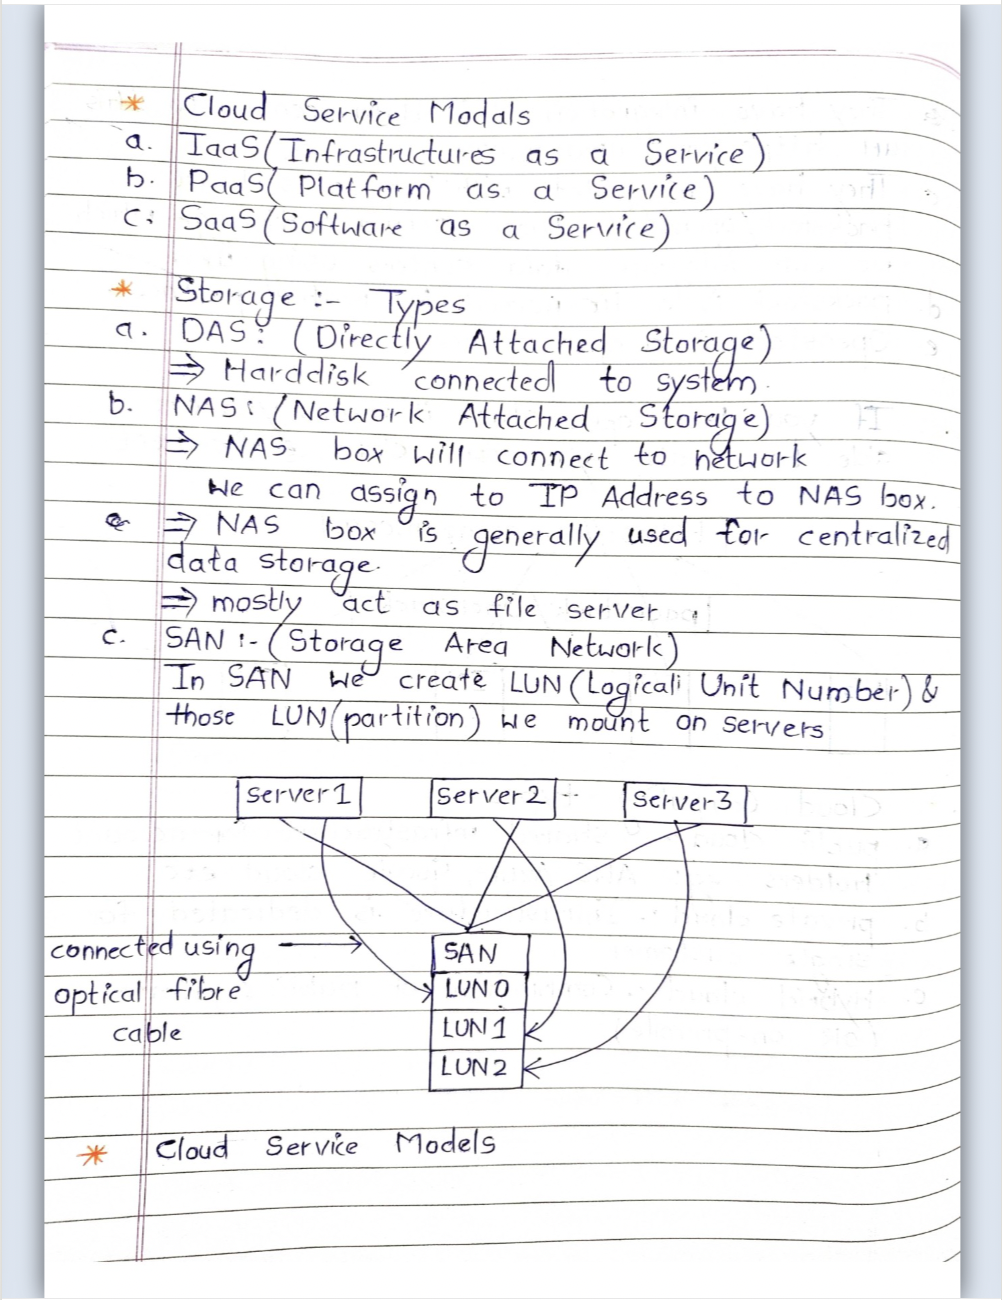 * Cloud Service Modals
a. IaaS (Infrastructures as a Service)
b. PaaS( Platform as a Service)
c: SaaS (Software as a Service)
* Storage :- Types
a. DAS: (Directly Attached Storage)
⇒ Harddisk connected to system.
b. NAS: (Network Attached Storage)
⇒ NAS box will connect to network
We can assign to IP Address to NAS box.
⇒ NAS box is generally used for centralized
data storage.
⇒ mostly act as file server.
c. SAN :- (Storage Area Network)
In SAN we create LUN (Logical Unit Number) &
those LUN (partition) we mount on servers
Server 1 Server 2 Server 3
connected using
optical fibre
cable
SAN
LUN 0
LUN 1
LUN 2
* Cloud Service Models